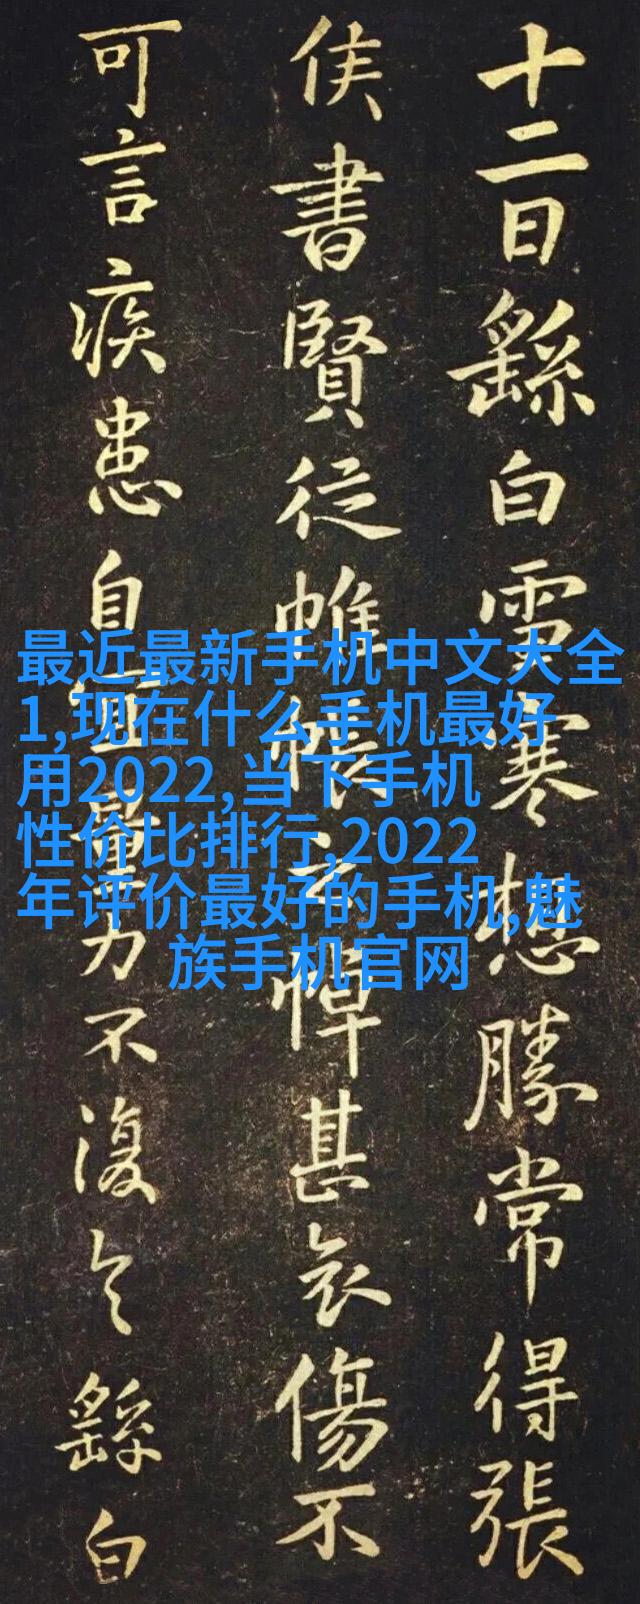 十二日繇白雪寒想勝常得張
侯書賢従帷帳之悼甚哀傷不
可言疾患自宜量力不復具繇白
最近最新手机中文大全
1,现在什么手机最好
用2022,当下手机
性价比排行,2022
年评价最好的手机,魅
族手机官网